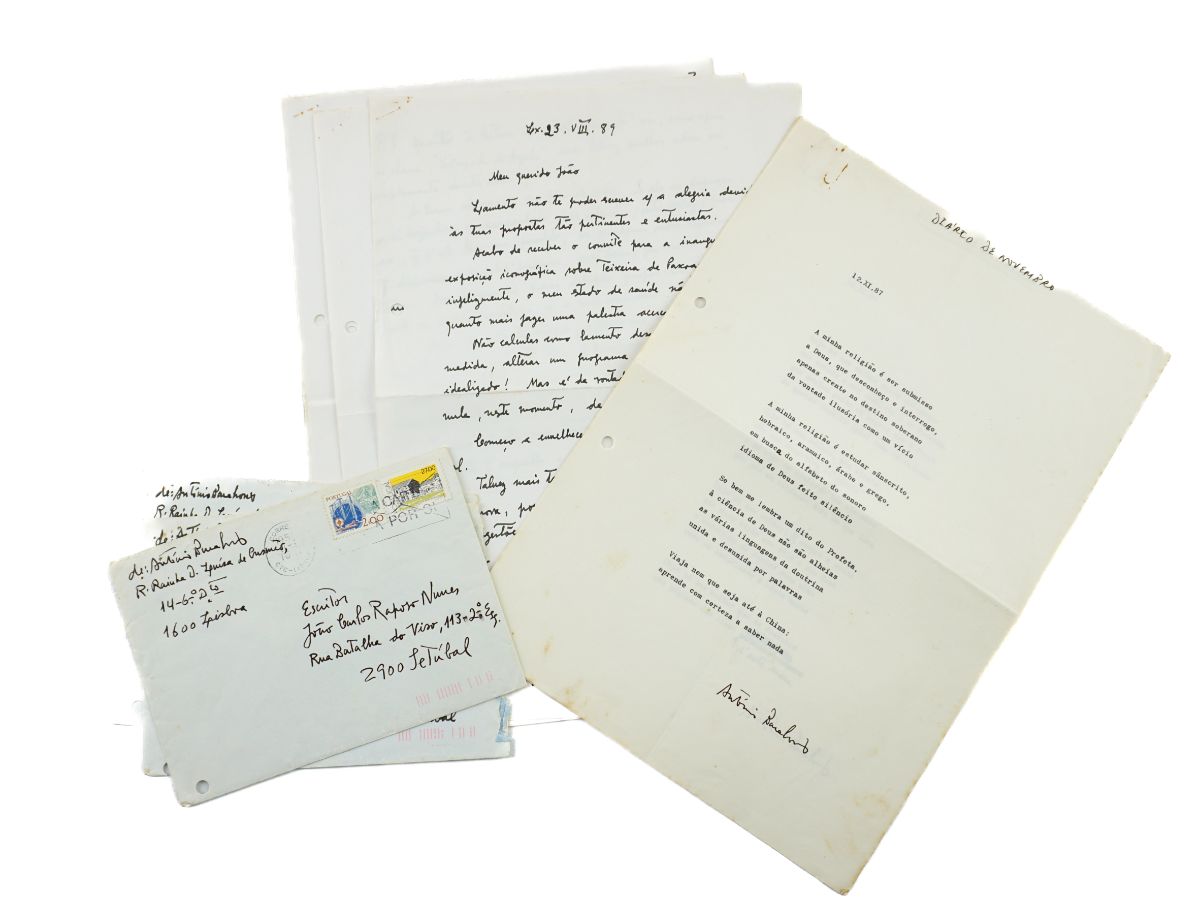 Lx. 23. VIII. 89
Meu querido João
Lamento não te poder escrever c/ a alegria
às tuas propostas tão pertinentes e entusiastas.
Acabo de receber o convite para a
exposição iconográfica sobre Teixeira de
infelizmente, o meu estado de saúde
quanto mais fazer uma palestra
Não calculas como lamento
medida, alterar um programa
idealizado! Mas é da
nula, neste momento, de
Começo a
Talvez mais
nova,
DIÁRIO DE NOVEMBRO
12.XI.87
A minha religião é ser submisso
a Deus, que desconheço e interrogo,
apenas crente no destino soberano
da vontade ilusória como um vício
A minha religião é estudar sânscrito,
hebraico, aramaico, árabe e grego,
em busca do alfabeto do sonoro
idioma de Deus feito silêncio
Se bem me lembra um dito do Profeta,
à ciência de Deus não são alheias
as várias linguagens da doutrina
unida e desunida por palavras
Viaja nem que seja até à China:
aprende com certeza a saber nada
António Barahona
de: António Barahona
R. Rainha D.
de:
de: António Barahona
R. Rainha D. Luísa de Gusmão,
14-6º Dto
1600 Lisboa
PORTUGAL
2.00
27.00
Escritor
João Carlos Raposo Nunes
Rua Batalha do Viso, 113-2º Esq.
2900 Setúbal